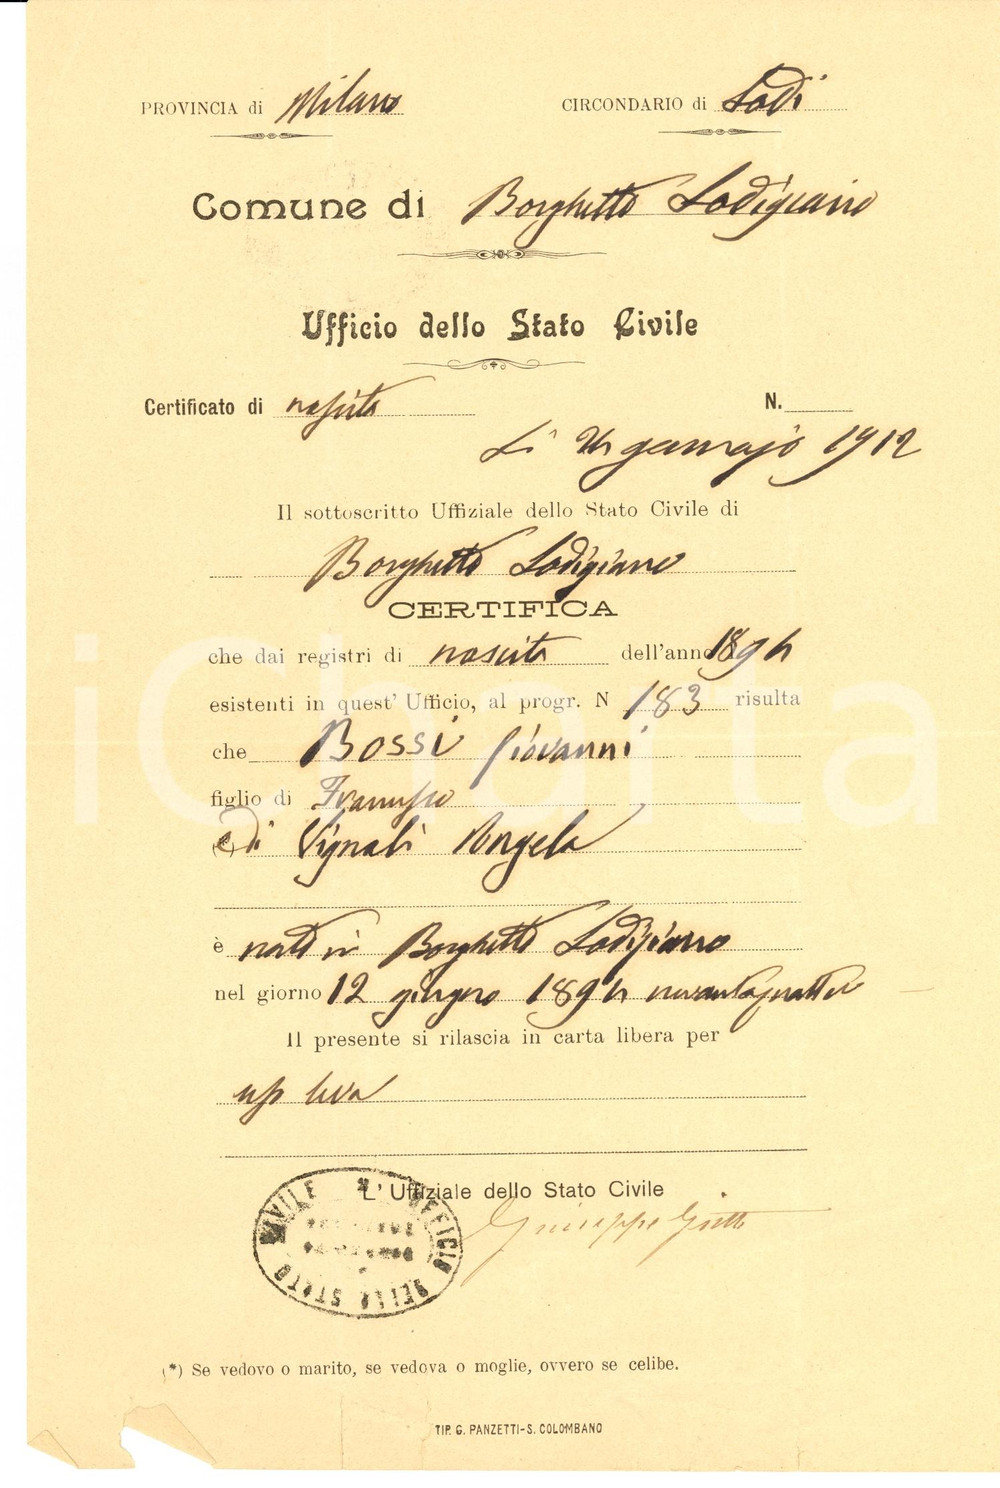 PROVINCIA di Milano CIRCONDARIO di Lodi
Comune di Borghetto Lodigiano
Ufficio dello Stato Civile
Certificato di nascita N.
Li gennajo 1912
Il sottoscritto Uffiziale dello Stato Civile di
Borghetto Lodigiano
CERTIFICA
che dai registri di nascita dell'anno 1894
esistenti in quest' Ufficio, al progr. N 183 risulta
che Bossi Giovanni
figlio di Francesco
e di Vignati Angela
è nato in Borghetto Lodigiano
nel giorno 12 giugno 1894 novantaquattro
Il presente si rilascia in carta libera per
uso leva
L' Uffiziale dello Stato Civile
Giuseppe
UFFICIO DELLO STATO CIVILE
(*) Se vedovo o marito, se vedova o moglie, ovvero se celibe.
TIP. G. PANZETTI-S. COLOMBANO
iCharta